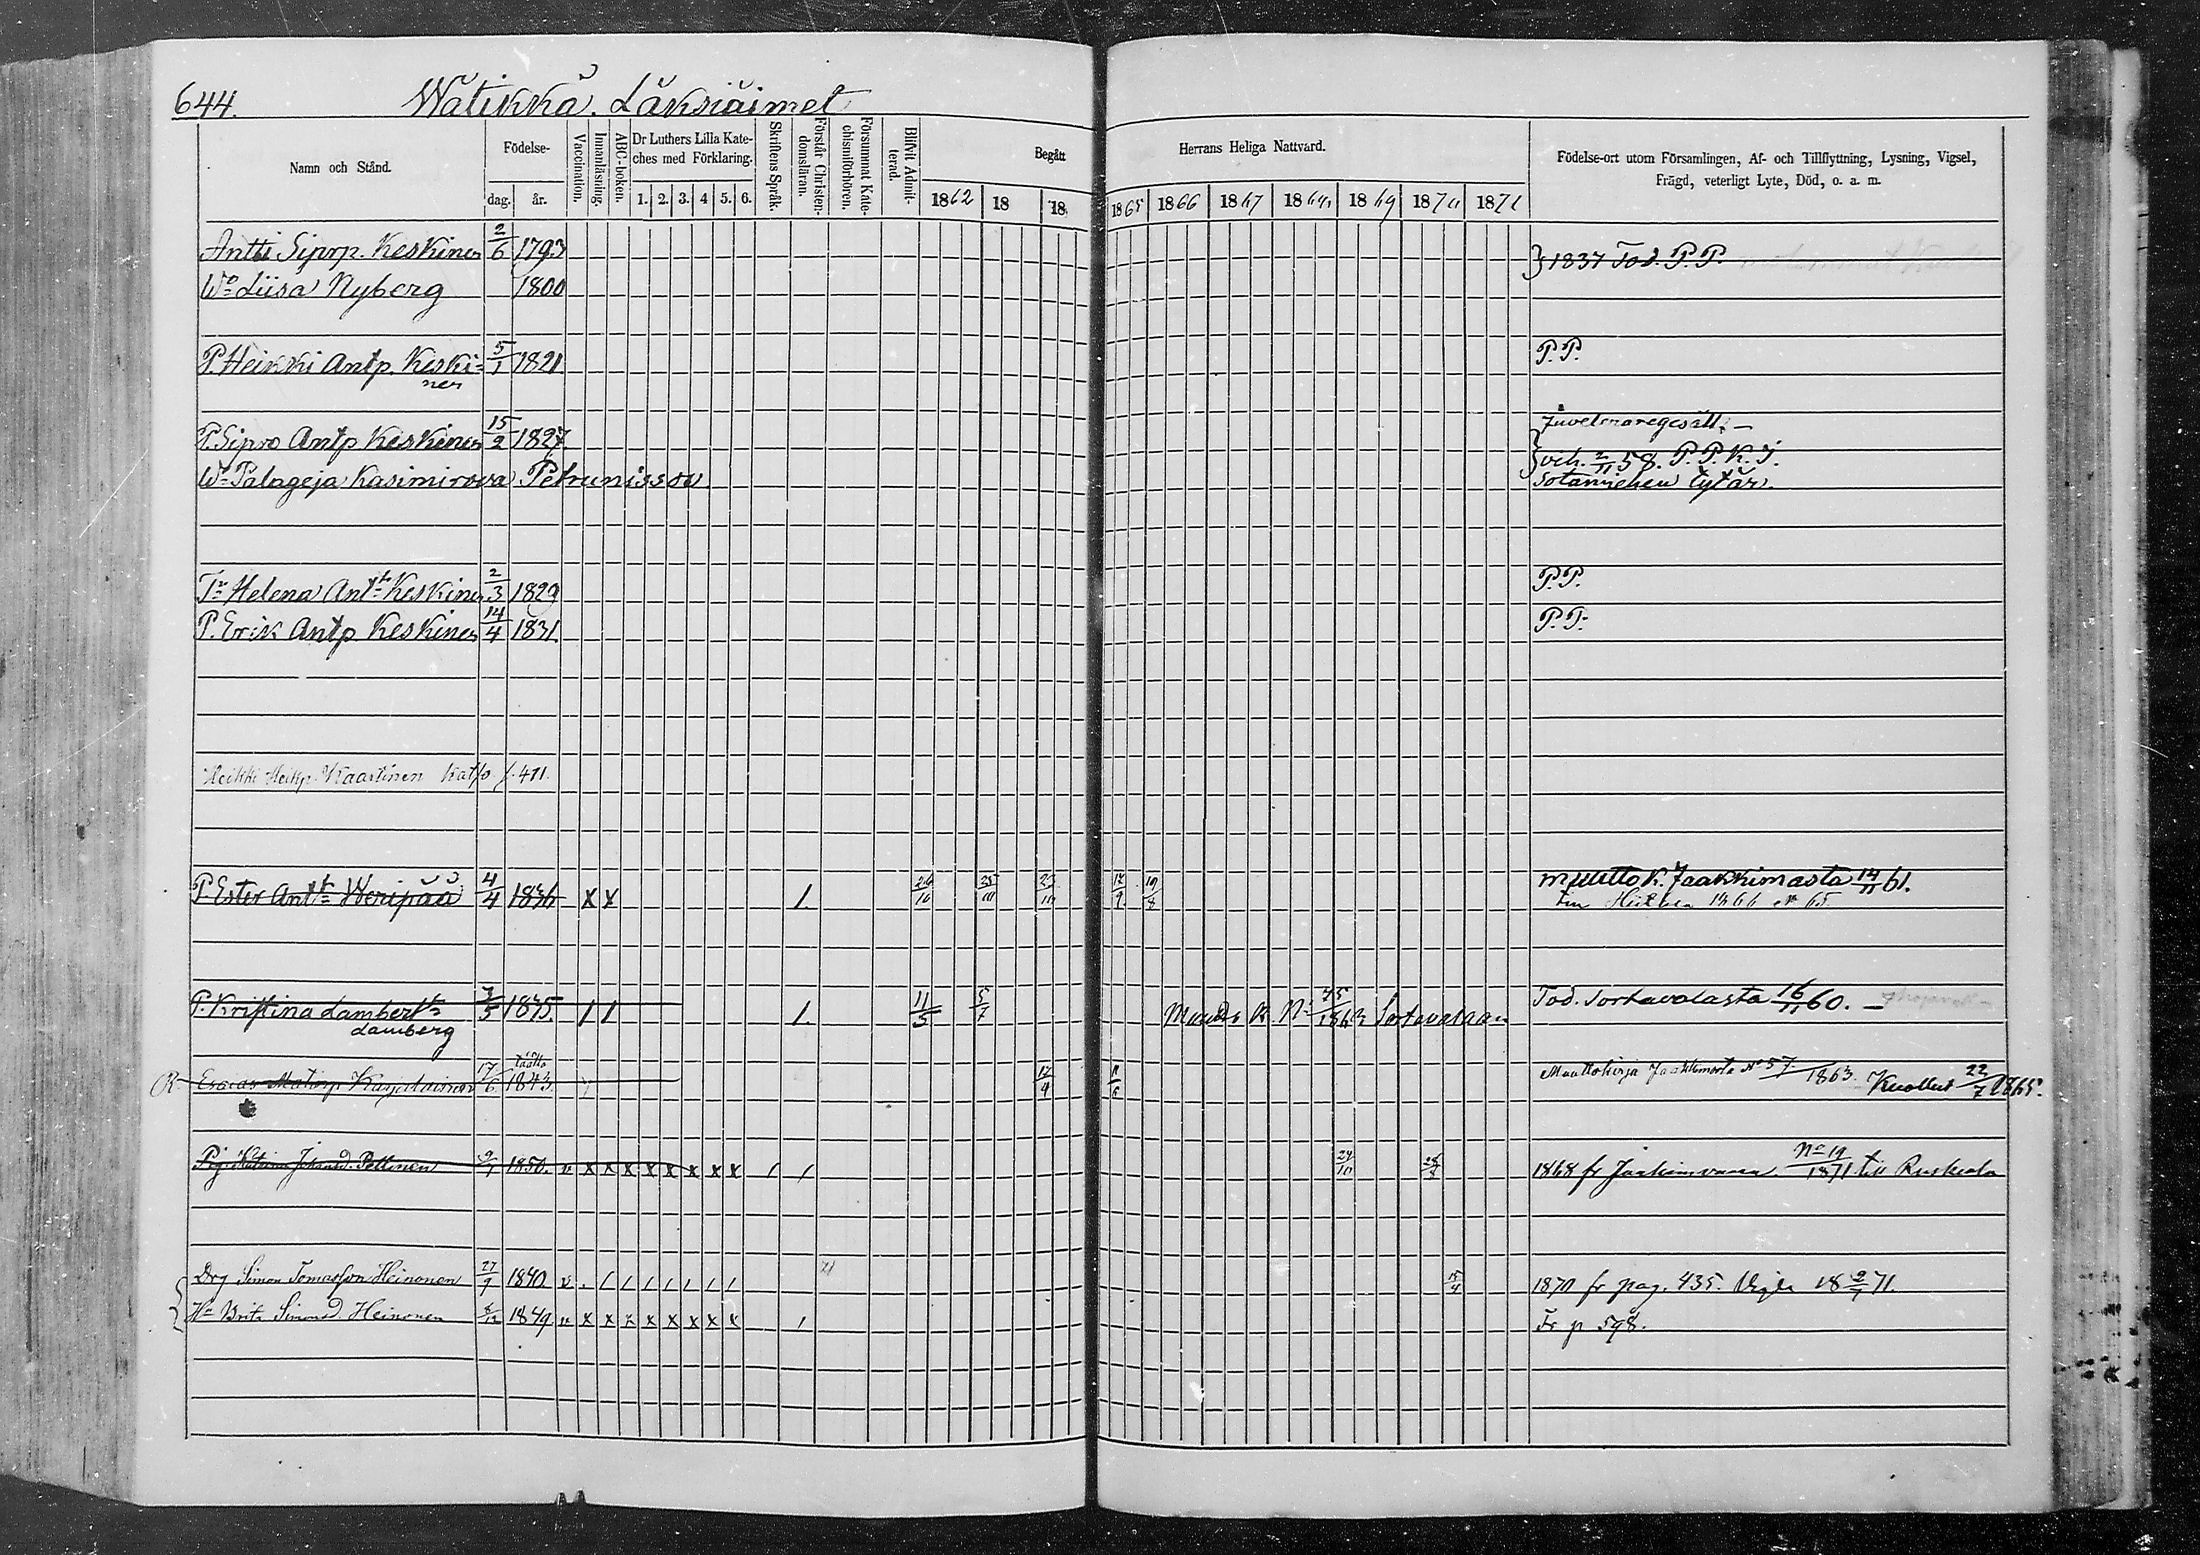 644. Wätikkä. Läksiäimet
Namn och Stånd.
Födelse-
dag. år.
Vaccination.
Innanläsning.
ABC-boken.
Dr Luthers Lilla Kate-
ches med Förklaring.
1. 2. 3. 4 5. 6.
Skriftens Språk.
Förstår Christen-
domsläran.
Försummat Kate-
chismiförhören.
Blifvit Admit-
terad.
Begått Herrans Heliga Nattvard.
1862 18 18 1865 1866 1867 1868 1869 1870 1871
Födelse-ort utom Församlingen, Af- och Tillflyttning, Lysning, Vigsel,
Frägd, veterligt Lyte, Död, o. a. m.
Antti Siprp. Keskinen 2/6 1793 } 1837 Tod. P. P.
Wo Liisa Nyberg 1800
P. Heikki Antp. Keski= 5/1 1821 P. P.
nen
P. Sipro Antp Keskinen 15/2 1827
Wo Palageja Kasimirova Petrunissov } vih. 2/11 58. P. P. K. J.
Sotamiehen tytär.
Tr Helena Antt Keskinen 2/3 1829 P. P.
P. Erik Antp Keskinen 14/4 1831. P. P.
Heikki Heikp. Kaartinen Katso s. 411.
P. Ester Antt Weripää 4/4 1836 X X 1. 26/10 25/10 23/10 10/8 muutto k. Jaakkimasta 14/11 61.
P. Kristina Lambertt 3/5 1835. 1 1 1. 11/5 5/7 Muutto k. No 45/1863 Sortavalaan Tod. Sortavalasta 16/11 60. —
Lamberg
R Esaias Matinp Karjalainen 17/6 1843. 12/4 Muuttokirja Jaakkimasta No 57/1863. Kuollut 22/7 1865.
Pig. Katrina Johansd. Pollinen 9/1 1850. v x x x x x x x x / / 24/10 1868 fr Jaakimvaara. No 19/1871 till Ruskeala
Drg Simon Tomasson Heinonen 27/9 1840 v . / / / / / / / 15/4 1870 fr pag. 435. Vigde 18 2/7 71.
Hu Brita Simonsd. Heinonen 8/12 1849 v x x x x x x x x / Fr p 598.